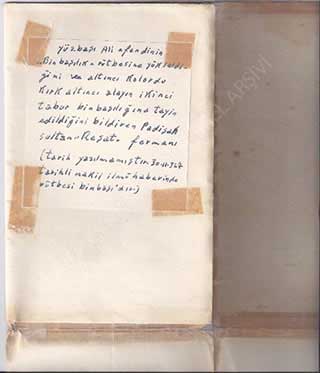 yüzbaşı Ali efendinin
"Binbaşılık" rütbesine yükseldi
ğini ve altıncı Kolordu
Kırk altıncı alayın ikinci
tabur binbaşılığına tayin
edildiğini bildiren Padişah
Sultan "Reşat" fermanı
(tarih yazılmamıştır.
tarihli nakil ilmühaberinde
rütbesi binbaşı'dır.)
ARŞİVİ